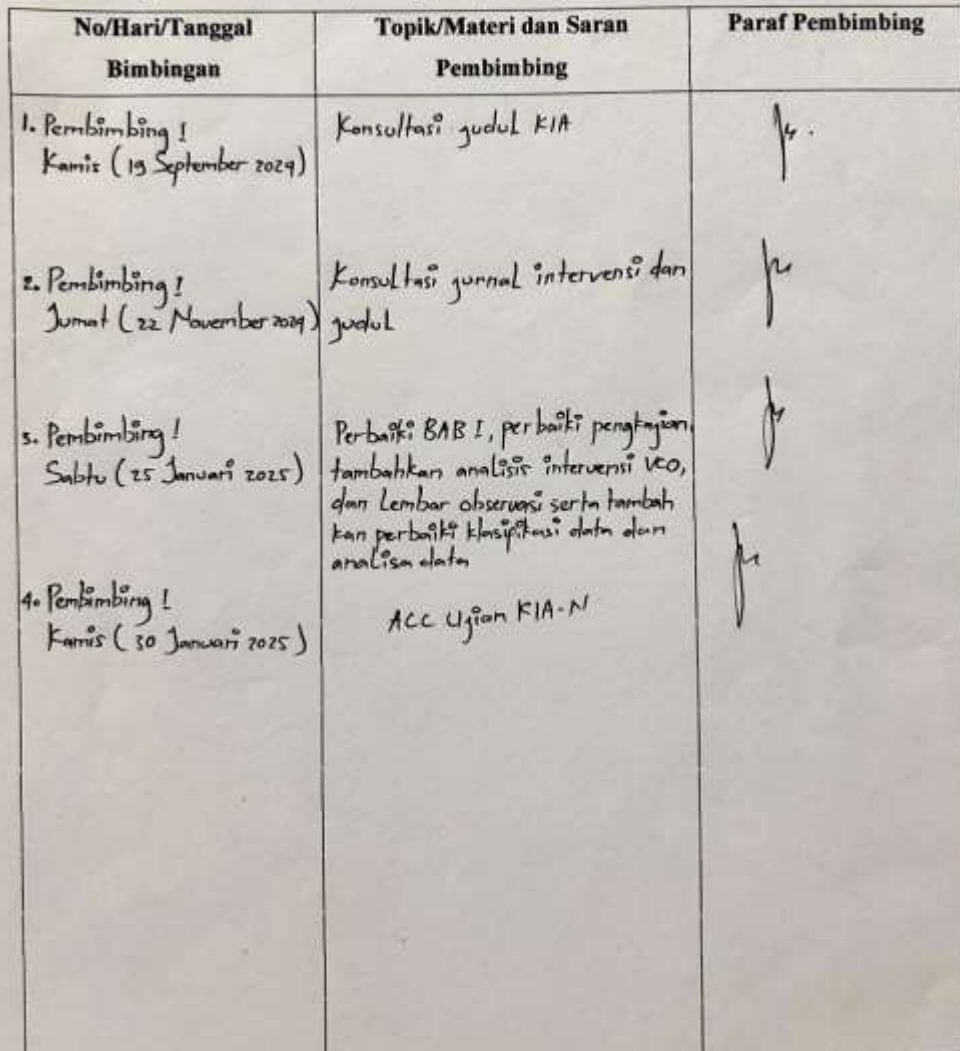 No/Hari/Tanggal Bimbingan
Topik/Materi dan Saran Pembimbing
Paraf Pembimbing
1. Pembimbing I
Kamis (19 September 2024)
Konsultasi judul KIA
2. Pembimbing I
Jumat (22 November 2024)
Konsultasi jurnal intervensi dan
judul
3. Pembimbing I
Sabtu (25 Januari 2025)
Perbaiki BAB I, perbaiki pengkajian,
tambahkan analisis intervensi VCO,
dan Lembar observasi serta tambah
kan perbaiki klasifikasi data dan
analisa data
4. Pembimbing I
Kamis (30 Januari 2025)
ACC Ujian KIA-N